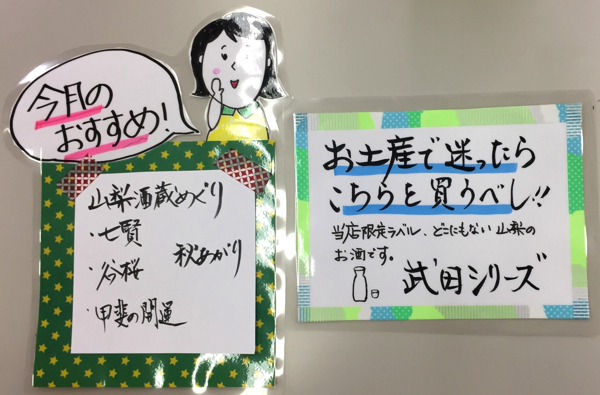 今月の
おすすめ!
山梨酒蔵めぐり
・七賢
秋あがり
・谷桜
・甲斐の開運
お土産で迷ったら
こちらを買うべし!!
当店限定ラベル、どこにもない山梨の
お酒です。
武田シリーズ